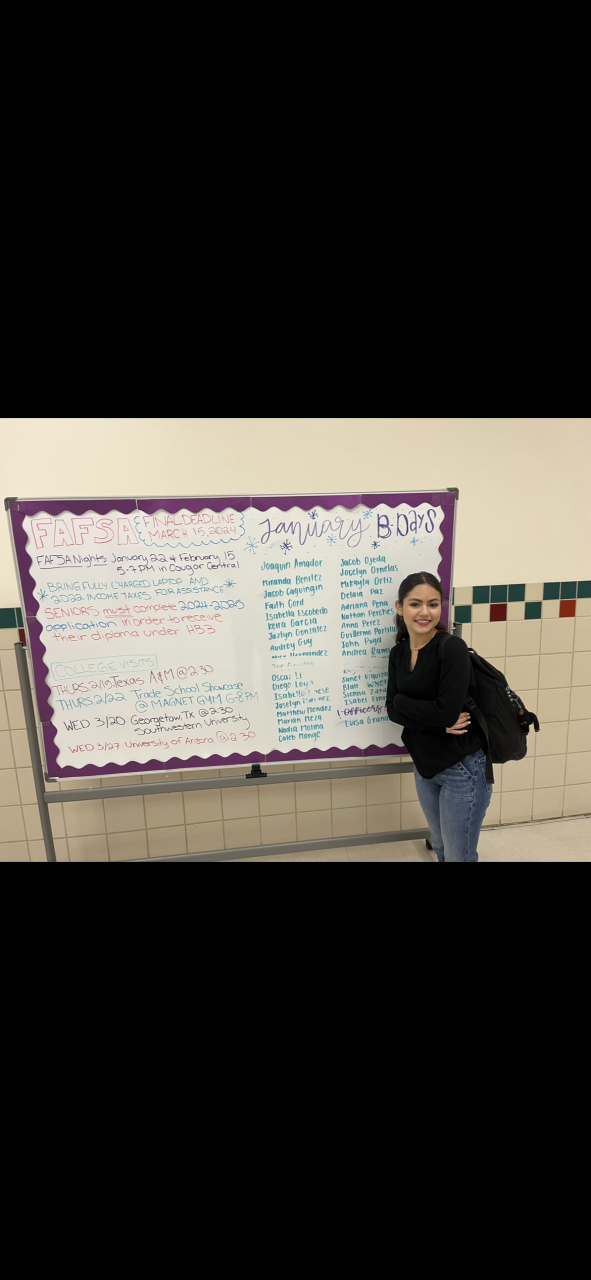 FAFSA
FINAL DEADLINE
MARCH 15, 2024
FAFSA Nights January 22 & February 15
5-7 PM in Cougar Central
BRING FULLY CHARGED LAPTOP AND
2022 INCOME TAXES FOR ASSISTANCE
SENIORS must complete 2024-2025
application in order to receive
their diploma under HB3
COLLEGE VISITS
THURS 2/15 Texas A&M @ 2:30
THURS 2/22 Trade School Showcase
@ MAGNET GYM 6-8 PM
WED 3/20 Georgetow, TX @ 2:30
Southwestern University
WED 3/27 University of Arizona @ 2:30
January B-Days
Joaquin Amador
Miranda Benitez
Jacob Caguingin
Faith Cord
Isabella Escobedo
Keira Garcia
Jazlyn Gonzalez
Audrey Guy
Hernandez
Oscar Li
Diego
Joselyn
Matthew Mendez
Marian Meza
Nadia Molina
Caleb Monge
Jacob Ojeda
Jocelyn Ornelas
Mikayla Ortiz
Delaia Paz
Adriana Pena
Nathan Perches
Anna Perez
Guillermo Portillo
John Puga
Andrea
Janet
Blair
Sienna
Isabel
Luisa